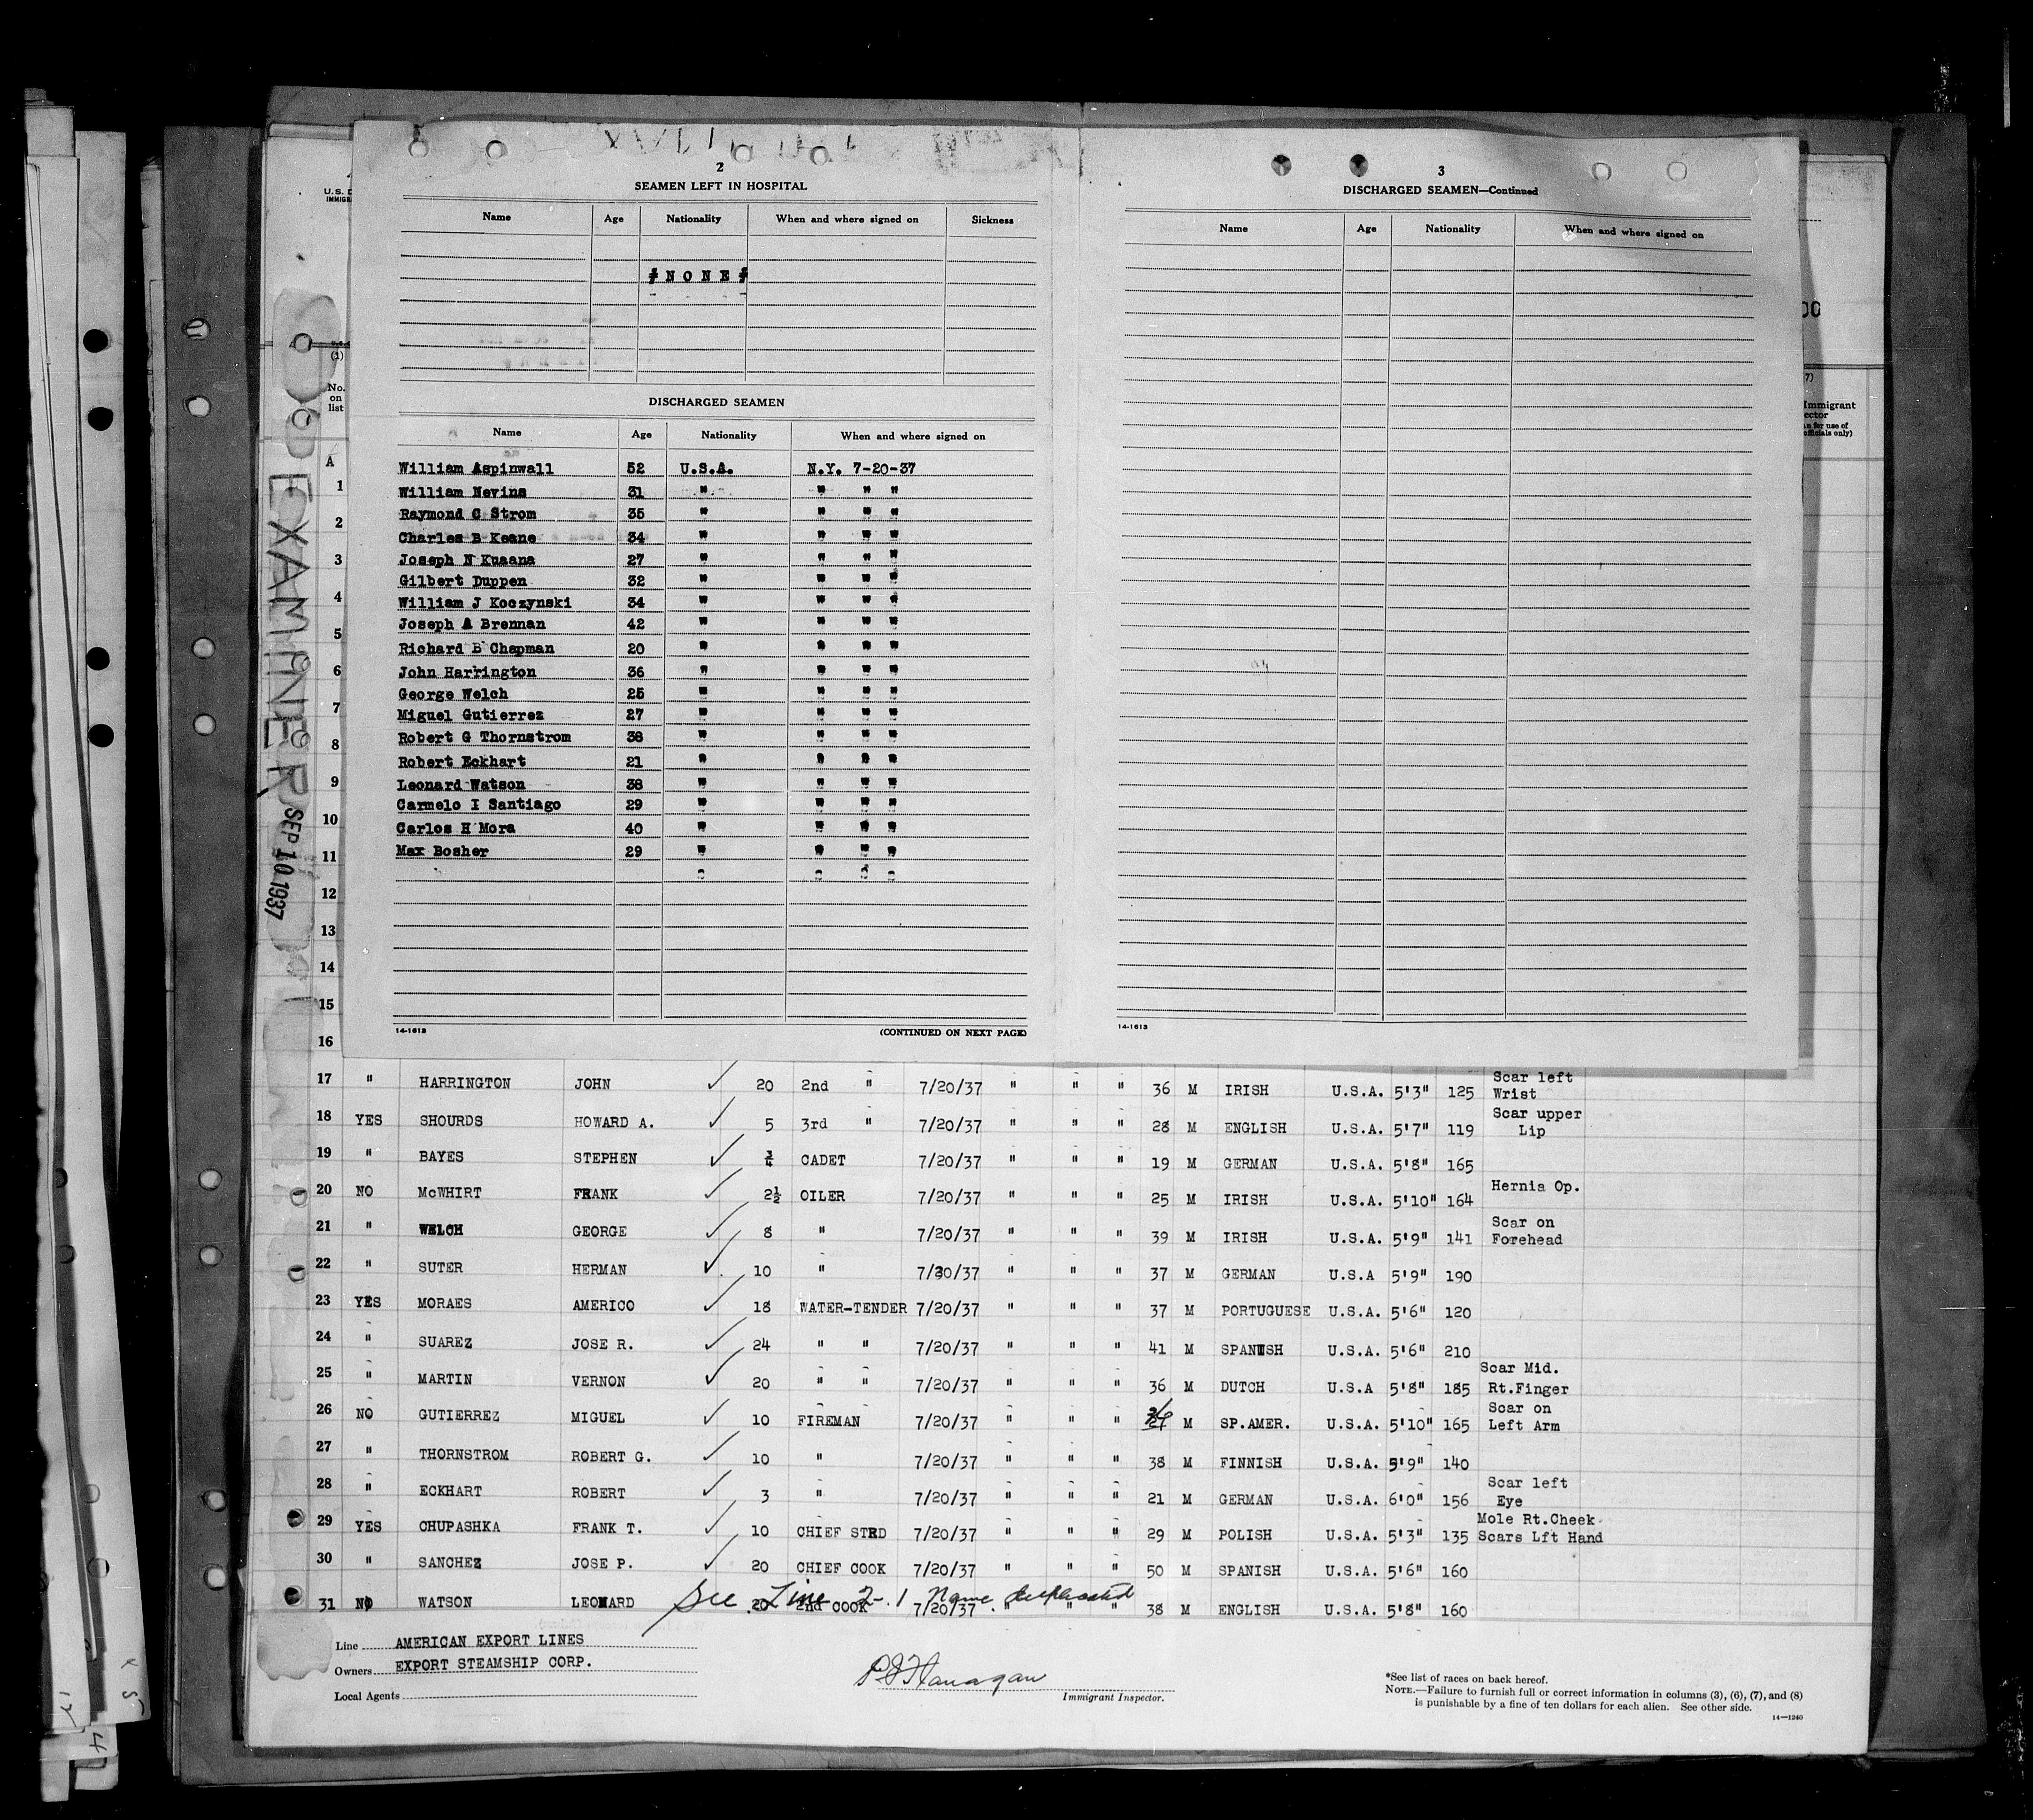 2
SEAMEN LEFT IN HOSPITAL
Name Age Nationality When and where signed on Sickness
# N O N E #
DISCHARGED SEAMEN
Name Age Nationality When and where signed on
William Aspinwall 52 U.S.A. N.Y. 7-20-37
William Nevins 31 " " " "
Raymond C Strom 35 " " " "
Charles B Keane 34 " " " "
Joseph N Kuaana 27 " " " "
Gilbert Duppen 32 " " " "
William J Koczynski 34 " " " "
Joseph A Brennan 42 " " " "
Richard B Chapman 20 " " " "
John Harrington 36 " " " "
George Welch 25 " " " "
Miguel Gutierrez 27 " " " "
Robert G Thornstrom 38 " " " "
Robert Eckhart 21 " " " "
Leonard Watson 38 " " " "
Carmelo I Santiago 29 " " " "
Carlos H Mora 40 " " " "
Max Bosher 29 " " " "
14-1613
(CONTINUED ON NEXT PAGE)
3
DISCHARGED SEAMEN—Continued
Name Age Nationality When and where signed on
14-1613
U.S. D
IMMIGRA
(1)
No.
on
list
A
1
2
3
4
5
6
7
8
9
10
11
12
13
14
15
16
00
7)
Immigrant
ector
n for use of
officials only)
EXAMINER
SEP 10 1937
17 " HARRINGTON JOHN ✓ 20 2nd " 7/20/37 " " " 36 M IRISH U.S.A. 5'3" 125 Scar left
Wrist
18 YES SHOURDS HOWARD A. ✓ 5 3rd " 7/20/37 " " " 28 M ENGLISH U.S.A. 5'7" 119 Scar upper
Lip
19 " BAYES STEPHEN ✓ 3/4 CADET 7/20/37 " " " 19 M GERMAN U.S.A. 5'8" 165
20 NO McWHIRT FRANK ✓ 2½ OILER 7/20/37 " " " 25 M IRISH U.S.A. 5'10" 164 Hernia Op.
21 " WELCH GEORGE ✓ 8 " 7/20/37 " " " 39 M IRISH U.S.A. 5'9" 141 Scar on
Forehead
22 " SUTER HERMAN ✓ 10 " 7/20/37 " " " 37 M GERMAN U.S.A 5'9" 190
23 YES MORAES AMERICO ✓ 18 WATER-TENDER 7/20/37 " " " 37 M PORTUGUESE U.S.A. 5'6" 120
24 " SUAREZ JOSE R. ✓ 24 " " 7/20/37 " " " 41 M SPANISH U.S.A. 5'6" 210
25 " MARTIN VERNON ✓ 20 " " 7/20/37 " " " 36 M DUTCH U.S.A 5'8" 185 Scar Mid.
Rt.Finger
26 NO GUTIERREZ MIGUEL ✓ 10 FIREMAN 7/20/37 " " " M SP.AMER. U.S.A. 5'10" 165 Scar on
Left Arm
27 " THORNSTROM ROBERT G. ✓ 10 " 7/20/37 " " " 38 M FINNISH U.S.A. 5'9" 140
28 " ECKHART ROBERT ✓ 3 " 7/20/37 " " " 21 M GERMAN U.S.A. 6'0" 156 Scar left
Eye
29 YES CHUPASHKA FRANK T. ✓ 10 CHIEF STRD 7/20/37 " " " 29 M POLISH U.S.A. 5'3" 135 Mole Rt.Cheek
Scars Lft Hand
30 " SANCHEZ JOSE P. ✓ 20 CHIEF COOK 7/20/37 " " " 50 M SPANISH U.S.A. 5'6" 160
See Line 2-1 Name duplicated
31 NO WATSON LEONARD 20 2nd COOK 7/20/37 " " " 38 M ENGLISH U.S.A. 5'8" 160
Line AMERICAN EXPORT LINES
Owners EXPORT STEAMSHIP CORP.
Local Agents
P J Flanagan
Immigrant Inspector.
*See list of races on back hereof.
NOTE.—Failure to furnish full or correct information in columns (3), (6), (7), and (8)
is punishable by a fine of ten dollars for each alien. See other side.
14—1240